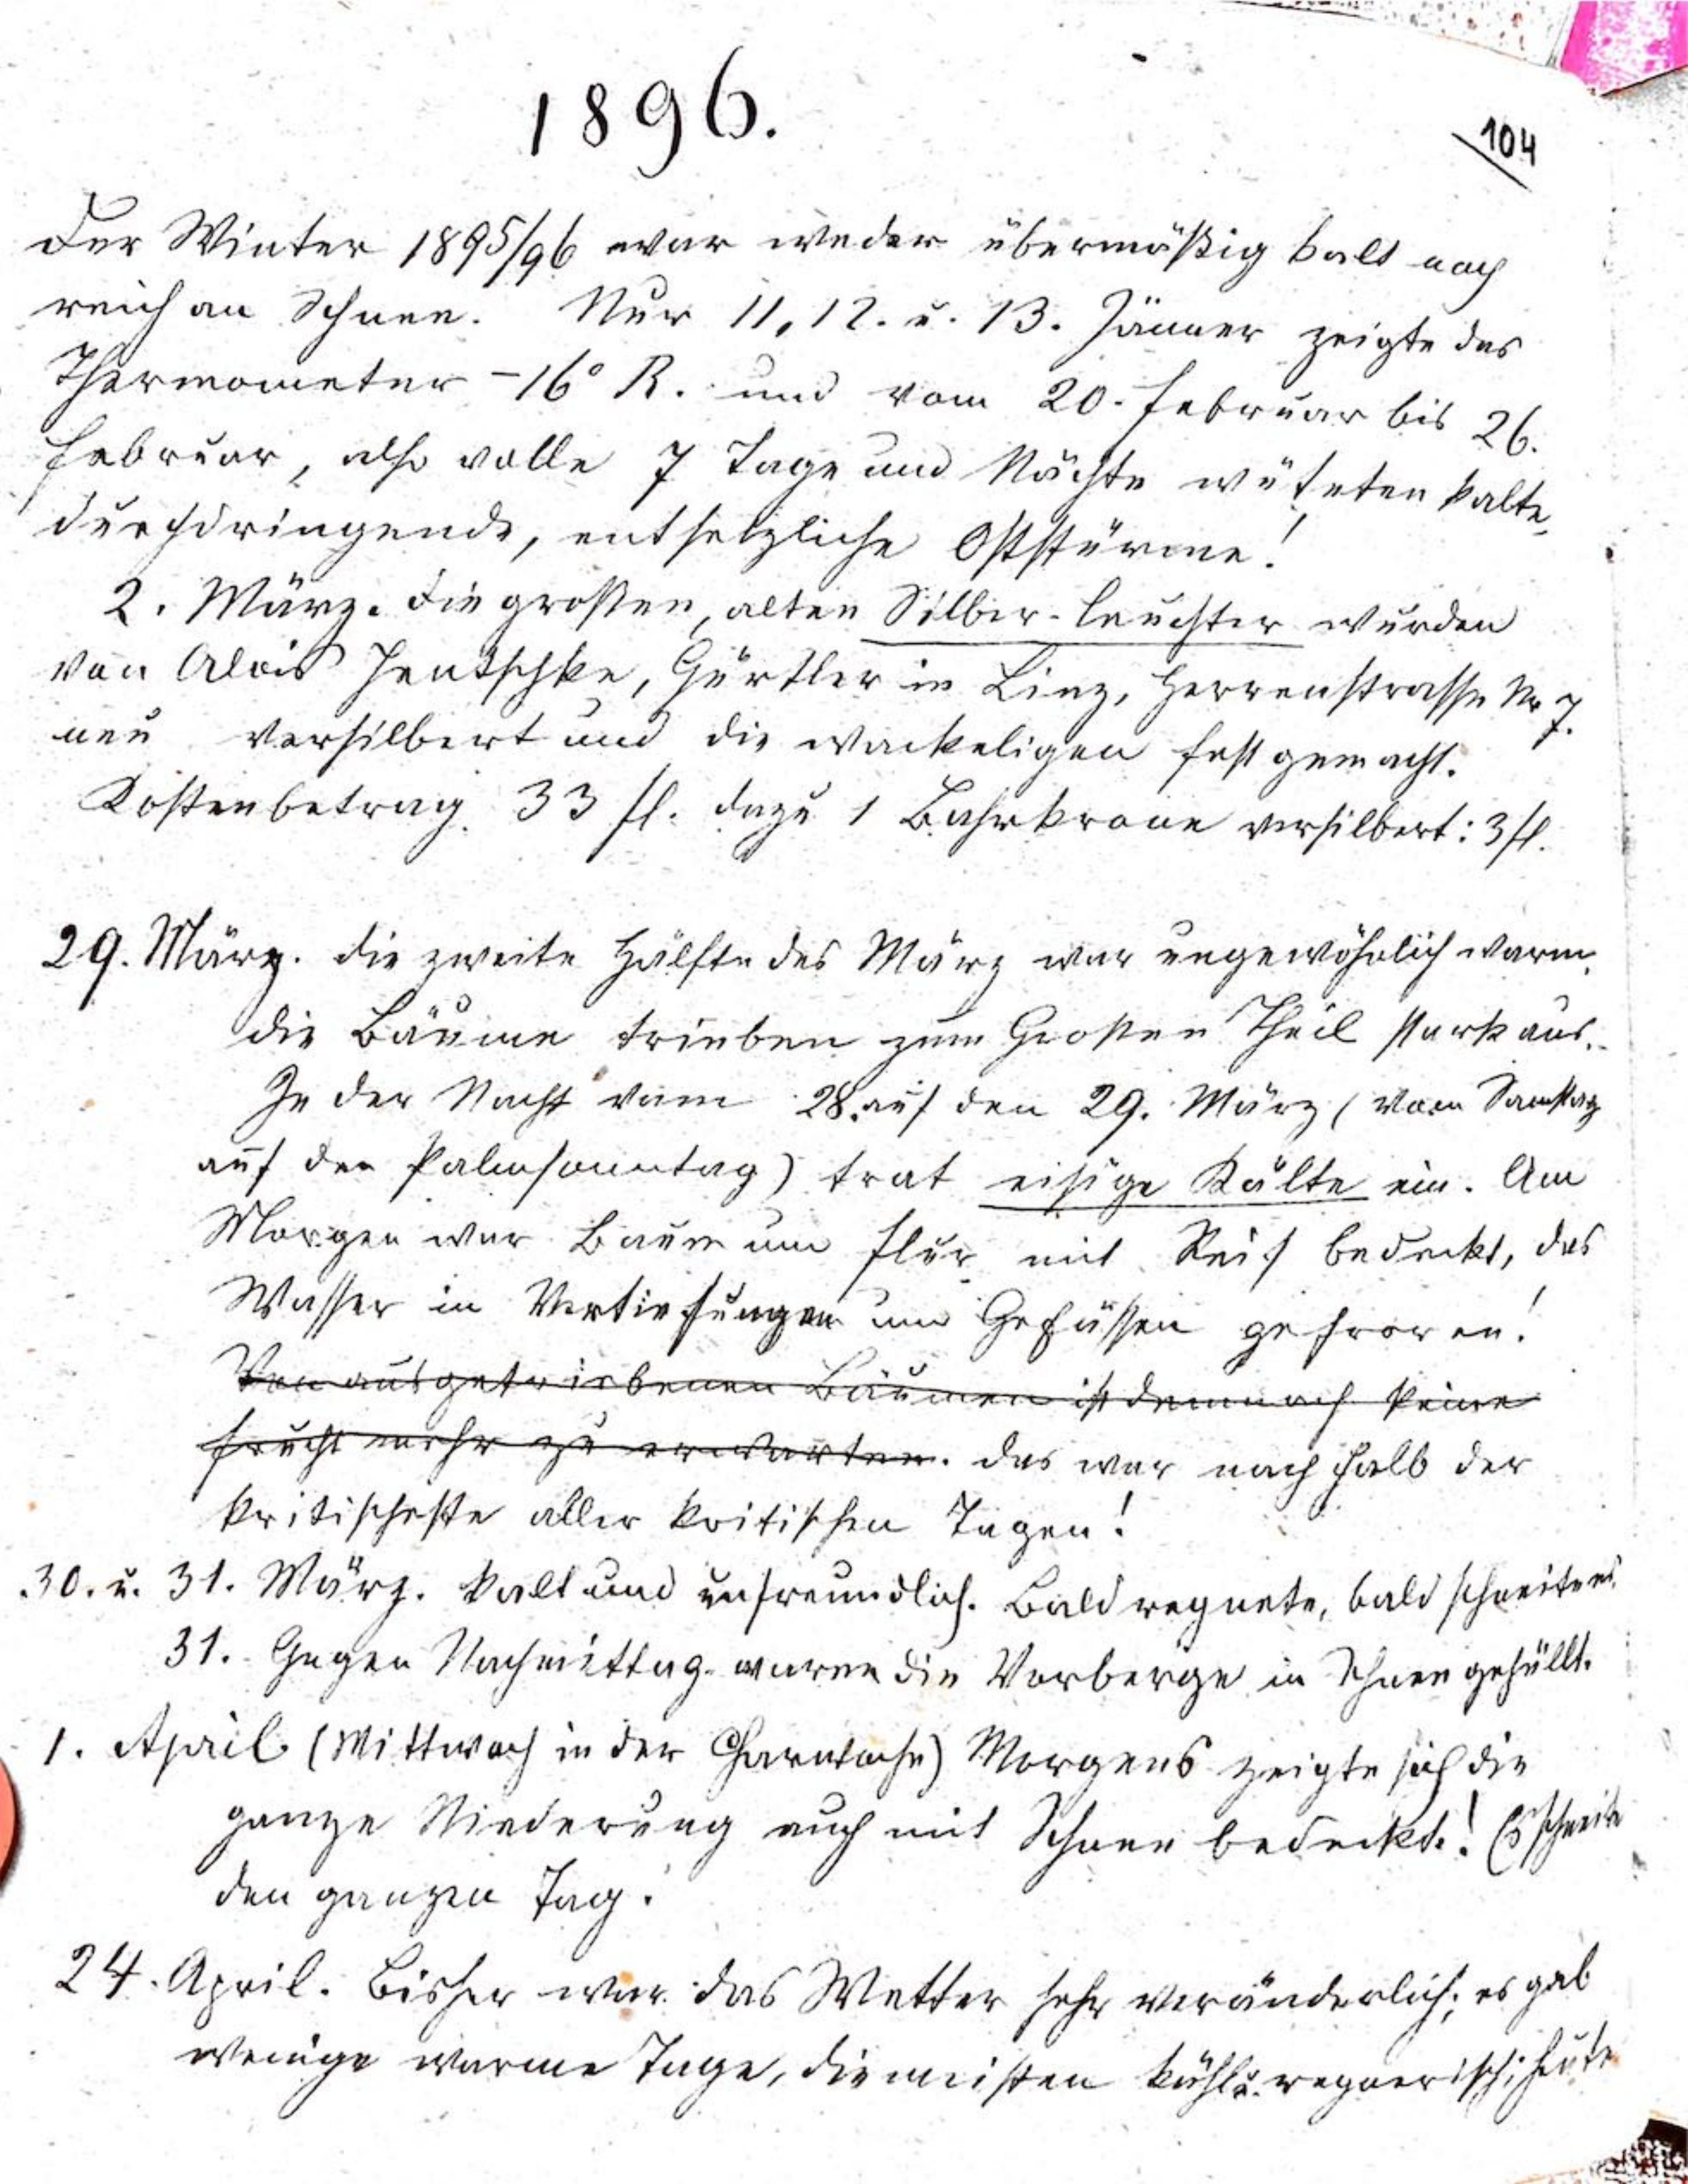 1896.
104
Der Winter 1895/96 war weder übermäßig kalt noch
reich an Schnee. Nur 11, 12. u. 13. Jänner zeigte das
Thermometer -16° R. und vom 20. Februar bis 26.
Februar, also volle 7 Tage und Nächte wüteten kalte,
durchdringende, entsetzliche Oststürme!
2. März. Die großen, alten Silber-Leuchter wurden
von Alois Jentschke, Gürtler in Linz, Herrenstrasse Nr 7.
neu versilbert und die wackeligen fest gemacht.
Kostenbetrag 33 fl. dazu 1 Bahrkrone versilbert: 3 fl.
29. März. Die zweite Hälfte des März war ungewöhnlich warm.
Die Bäume trieben zum Großen Theil stark aus.
In der Nacht vom 28. auf den 29. März (vom Samstag
auf den Palmsonntag) trat eisige Kälte ein. Am
Morgen war Baum und Flur mit Reif bedeckt, das
Wasser in Vertiefungen und Gefässen gefroren!
Von ausgetriebenen Bäumen ist demnach keine
Frucht mehr zu erwarten. Das war nach Falb der
kritischeste aller kritischen Tagen!
30. u. 31. März. Kalt und unfreundlich. Bald regnete, bald schneite es.
31. Gegen Nachmittag waren die Vorberge in Schnee gehüllt.
1. April (Mittwoch in der Charwoche) Morgens zeigte sich die
ganze Niederung auch mit Schnee bedeckt! Es schneite
den ganzen Tag.
24. April. Bisher war das Wetter sehr veränderlich; es gab
wenige warme Tage, die meisten kühl u. regnerisch; heute